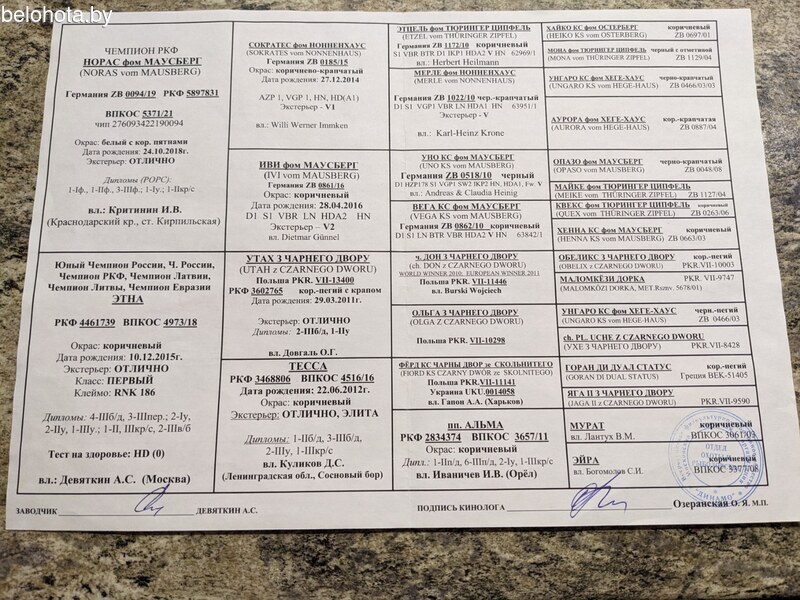 belohota.by
ЧЕМПИОН РКФ
НОРАС фом МАУСБЕРГ
(NORAS vom MAUSBERG)
Германия ZB 0094/19 РКФ 5897831
ВПКОС 5371/21
чип 276093422190094
Окрас: белый с кор. пятнами
Дата рождения: 24.10.2018г.
Экстерьер: ОТЛИЧНО
Дипломы (РОРС):
1-Iф., 1-IIф., 3-IIIф.; 1-Iу.; 1-IIкр/с
вл.: Критинин И.В.
(Краснодарский кр., ст. Кирпильская)
Юный Чемпион России, Ч. России,
Чемпион РКФ, Чемпион Латвии,
Чемпион Литвы, Чемпион Евразии
ЭТНА
РКФ 4461739 ВПКОС 4973/18
Окрас: коричневый
Дата рождения: 10.12.2015г.
Экстерьер: ОТЛИЧНО
Класс: ПЕРВЫЙ
Клеймо: RNK 186
Дипломы: 4-IIIб/д, 3-IIIпер.; 2-Iу,
2-IIу, 1-IIIу.; 1-II, IIIкр/с, 2-IIIв/б
Тест на здоровье: HD (0)
вл.: Девяткин А.С. (Москва)
СОКРАТЕС фом НОННЕНХАУС
(SOKRATES vom NONNENHAUS)
Германия ZB 0185/15
Окрас: коричнево-крапчатый
Дата рождения: 27.12.2014
AZP 1, VGP 1, HN, HD(A1)
Экстерьер - V1
вл.: Willi Werner Immken
ИВИ фом МАУСБЕРГ
(IVI vom MAUSBERG)
Германия ZB 0861/16
Окрас: коричневый
Дата рождения: 28.04.2016
D1 S1 VBR LN HDA2 HN
Экстерьер – V2
вл. Dietmar Günnel
УТАХ З ЧАРНЕГО ДВОРУ
(UTAH z CZARNEGO DWORU)
Польша PKR. VII-13400
РКФ 3602765 кор.-пегий с крапом
Дата рождения: 29.03.2011г.
Экстерьер: ОТЛИЧНО
Дипломы: 2-IIIб/д, 1-IIу
вл.: Довгаль О.Г.
ТЕССА
РКФ 3468806 ВПКОС 4516/16
Дата рождения: 22.06.2012г.
Окрас: коричневый
Экстерьер: ОТЛИЧНО, ЭЛИТА
Дипломы: 1-IIб/д, 3-IIIб/д,
2-IIIу, 1-IIIкр/с
вл.: Куликов Д.С.
(Ленинградская обл., Сосновый бор)
ЭТЦЕЛЬ фом ТЮРИНГЕР ЦИПФЕЛЬ
(ETZEL vom THÜRINGER ZIPFEL)
Германия ZB 1172/10 коричневый
S1 VBR BTR D1 IKP1 HDA2 V HN 62969/1
вл.: Herbert Heilmann
МЕРЛЕ фом НОННЕНХАУС
(MERLE vom NONNENHAUS)
Германия ZB 1022/10 чер.-крапчатый
D1 S1 VGP1 VBR LN HDA1 HN 63951/1
Экстерьер - V
вл.: Karl-Heinz Krone
УНО КС фом МАУСБЕРГ
(UNO KS vom MAUSBERG)
Германия ZB 0518/10 черный
D1 HZP178 S1 VGP1 SW2 IKP2 HN, HDA1, Fw. V
вл.: Andreas & Claudia Heinig
ВЕГА КС фом МАУСБЕРГ
(VEGA KS vom MAUSBERG)
Германия ZB 0862/10 коричневый
D1 S1 LN BTR VBR HDA2 V HN 63842/1
ч. ДОН З ЧАРНЕГО ДВОРУ
(ch. DON z CZARNEGO DWORU)
WORLD WINNER 2010, EUROPEAN WINNER 2011
Польша PKR. VII-11446
вл. Burski Wojciech
ОЛЬГА З ЧАРНЕГО ДВОРУ
(OLGA Z CZARNEGO DWORU)
Польша PKR. VII-10298
ФЁРД КС ЧАРНЫ ДВОР зе СКОЛЬНИТЕГО
(FIORD KS CZARNY DWÓR ze SKOLNITEGO)
Польша PKR.VII-11141
Украина UKU.0014058
вл. Гапон А.А. (Харьков)
пп. АЛЬМА
РКФ 2834374 ВПКОС 3657/11
Окрас: коричневый
Дипл.: 1-IIп/д, 6-IIIп/д, 2-Iу, 1-IIIкр/с
вл.: Иваничев И.В. (Орёл)
ХАЙКО КС фом ОСТЕРБЕРГ коричневый
(HEIKO KS vom OSTERBERG) ZB 0697/01
МОНА фом ТЮРИНГЕР ЦИПФЕЛЬ черный с отметиной
(MONA vom THÜRINGER ZIPFEL) ZB 1129/04
УНГАРО КС фом ХЕГЕ-ХАУС черно-крапчатый
(UNGARO KS vom HEGE-HAUS) ZB 0466/03/03
АУРОРА фом ХЕГЕ-ХАУС кор.-крапчатая
(AURORA vom HEGE-HAUS) ZB 0887/04
ОПАЗО фом МАУСБЕРГ черно-крапчатый
(OPASO vom MAUSBERG) ZB 0048/08
МАЙКЕ фом ТЮРИНГЕР ЦИПФЕЛЬ
(MEIKE vom THÜRINGER ZIPFEL) ZB 1127/04
КВЕКС фом ТЮРИНГЕР ЦИПФЕЛЬ коричневый
(QUEX vom THÜRINGER ZIPFEL) ZB 0263/06
ХЕННА КС фом МАУСБЕРГ коричневый
(HENNA KS vom MAUSBERG) ZB 0663/03
ОБЕЛИКС З ЧАРНЕГО ДВОРУ кор.-пегий
(OBELIX z CZARNEGO DWORU) PKR.VII-10003
МАЛОМКЕЗИ ДОРКА PKR. VII-9747
(MALOMKÖZI DORKA, MET.Rsznv. 5678/01)
УНГАРО КС фом ХЕГЕ-ХАУС черн.-пегий
(UNGARO KS vom HEGE-HAUS) ZB 0466/03
ch. PL. UCHE Z CZARNEGO DWORU
(УХЕ З ЧАРНЕГО ДВОРУ) PKR.VII-8428
ГОРАН ДИ ДУАЛ СТАТУС кор.-пегий
(GORAN DI DUAL STATUS) Греция ВЕК-51405
ЯГА II З ЧАРНЕГО ДВОРУ
(JAGA II Z CZARNEGO DWORU) PKR.VII-9590
МУРАТ коричневый
вл. Лантух В.М. ВПКОС 3061/03
ЭЙРА коричневый
вл. Богомолов С.И. ВПКОС 3377/08
ОТДЕЛ
"ДИНАМО"
ЗАВОДЧИК ДЕВЯТКИН А.С. ПОДПИСЬ КИНОЛОГА Озеранская О. Я. М.П.